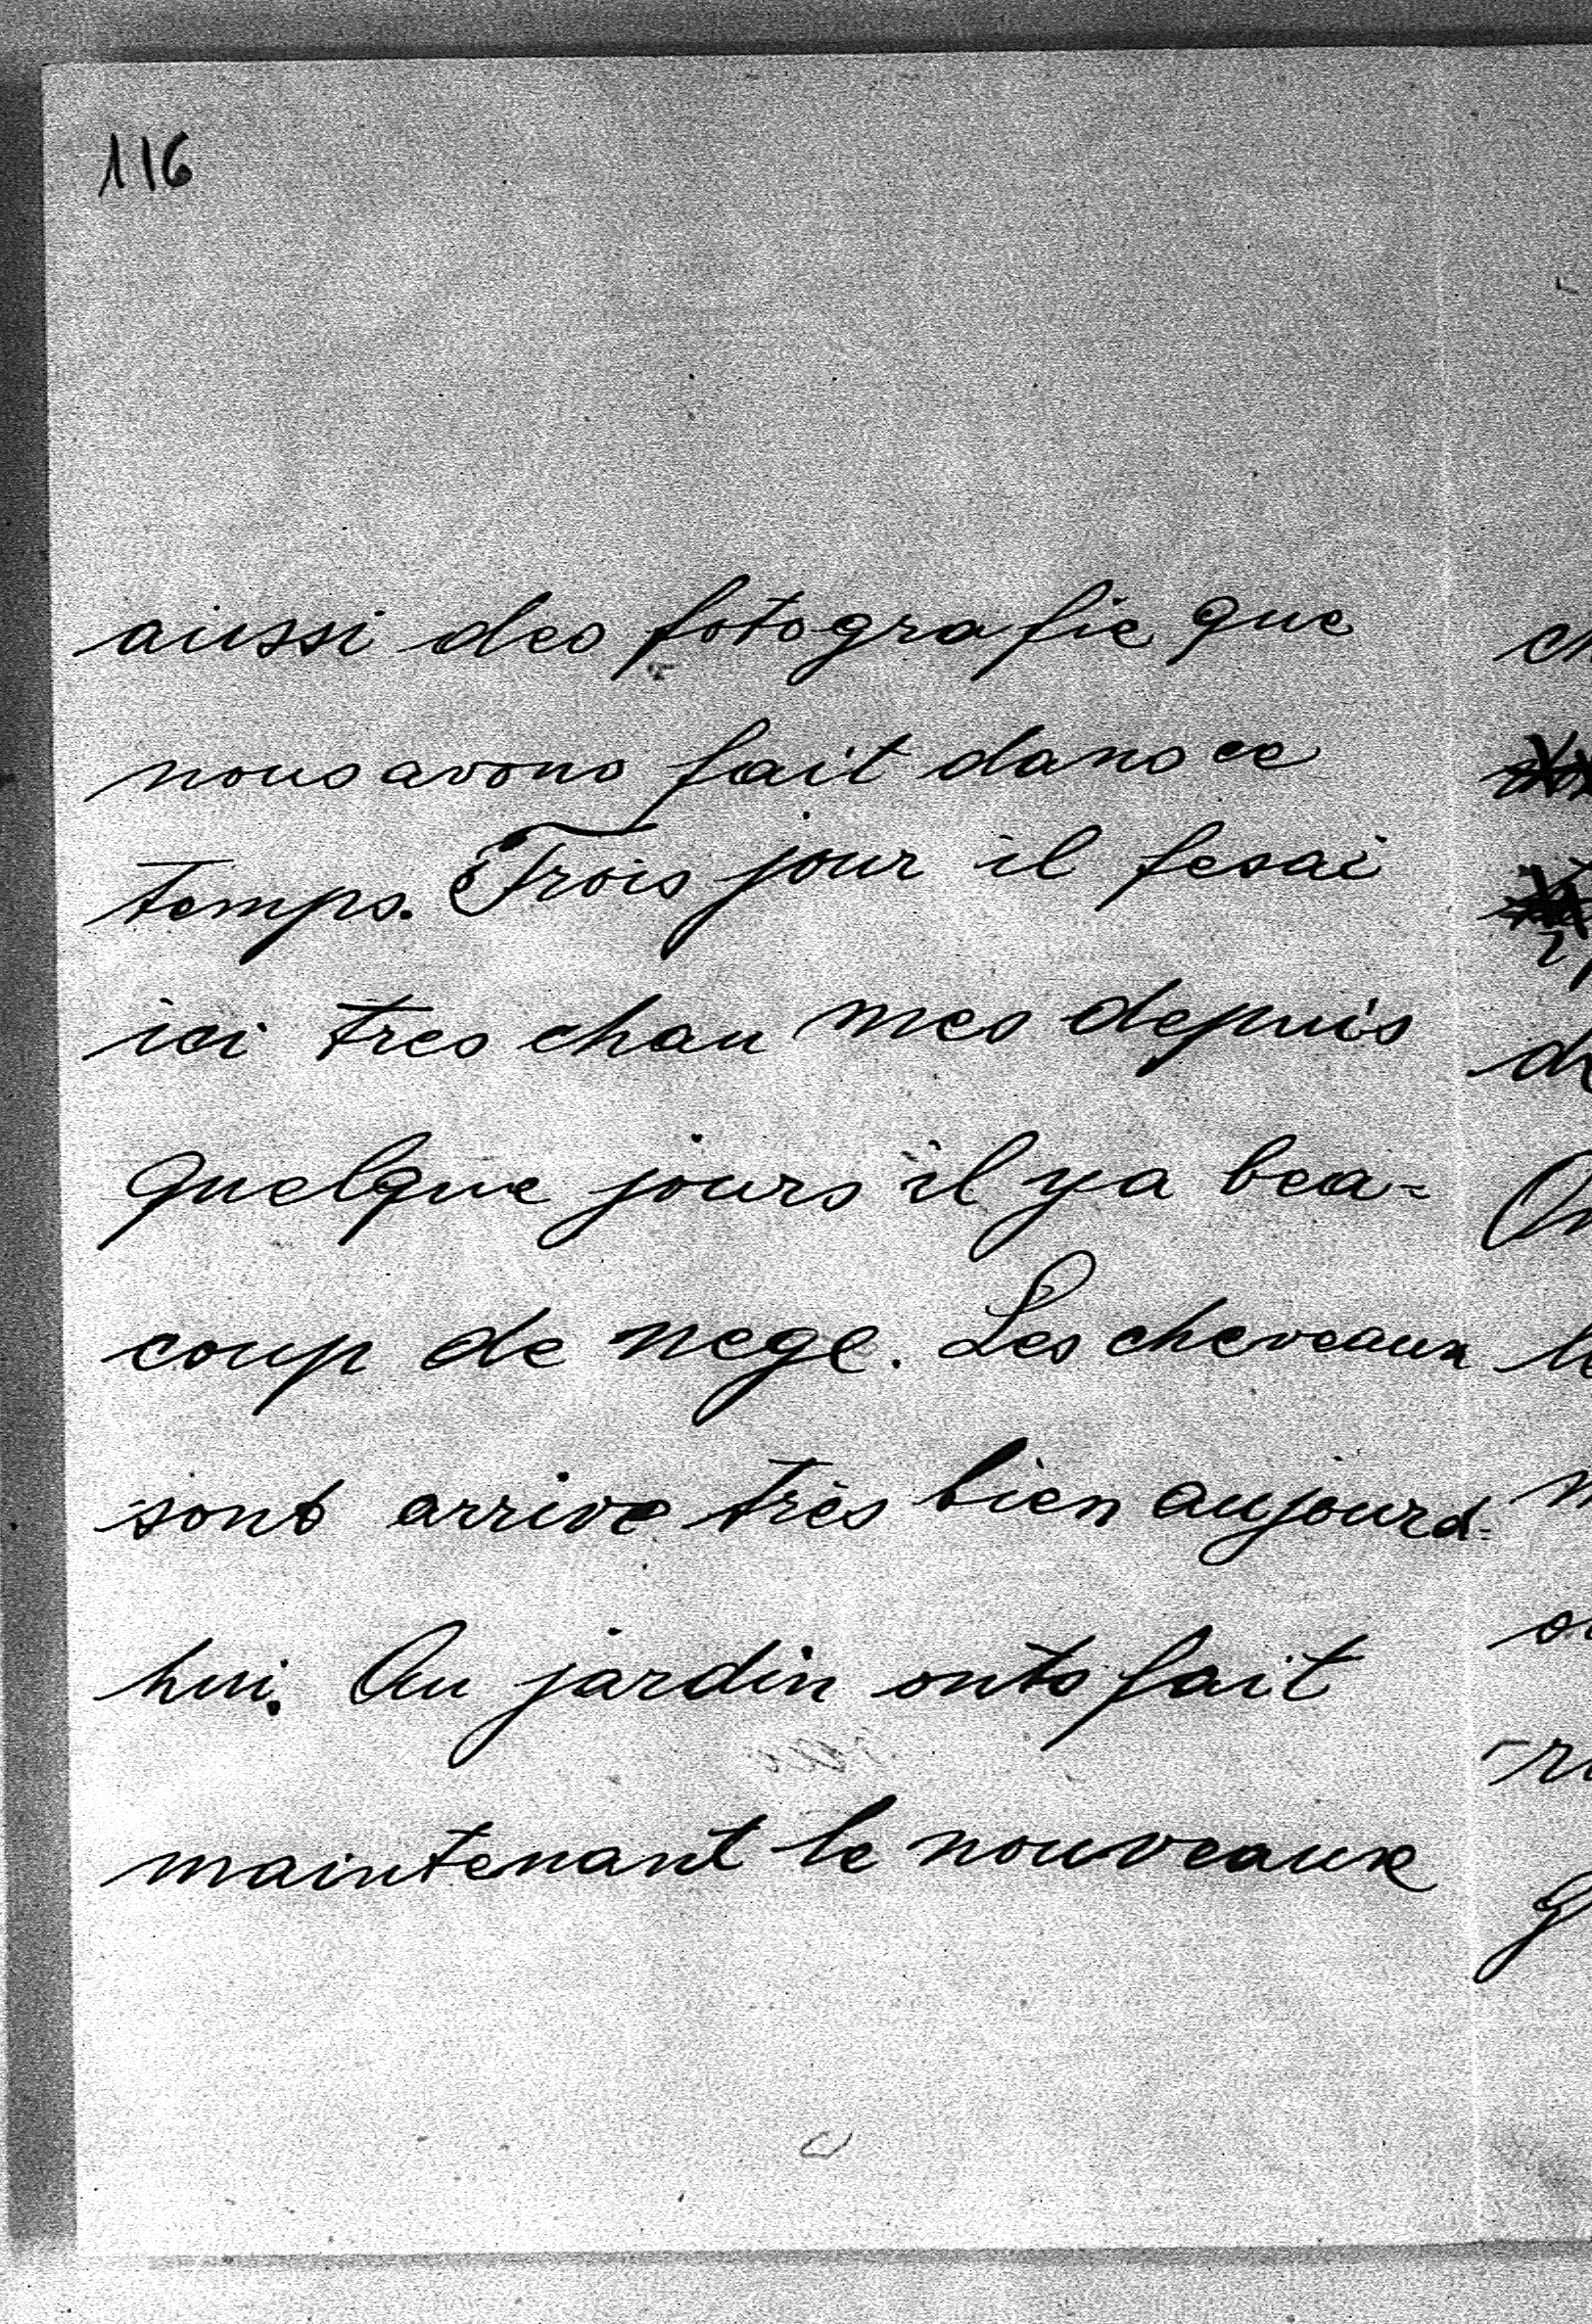 116
aussi des fotografie que
nous avons fait dans ce
temps. Trois jour il fesai
ici tres chau mes depuis
quelque jours il ya bea-
coup de nege. Les cheveaux
sont arrive très bien aujourd-
hui. Au jardin onts fait
maintenant le nouveaux